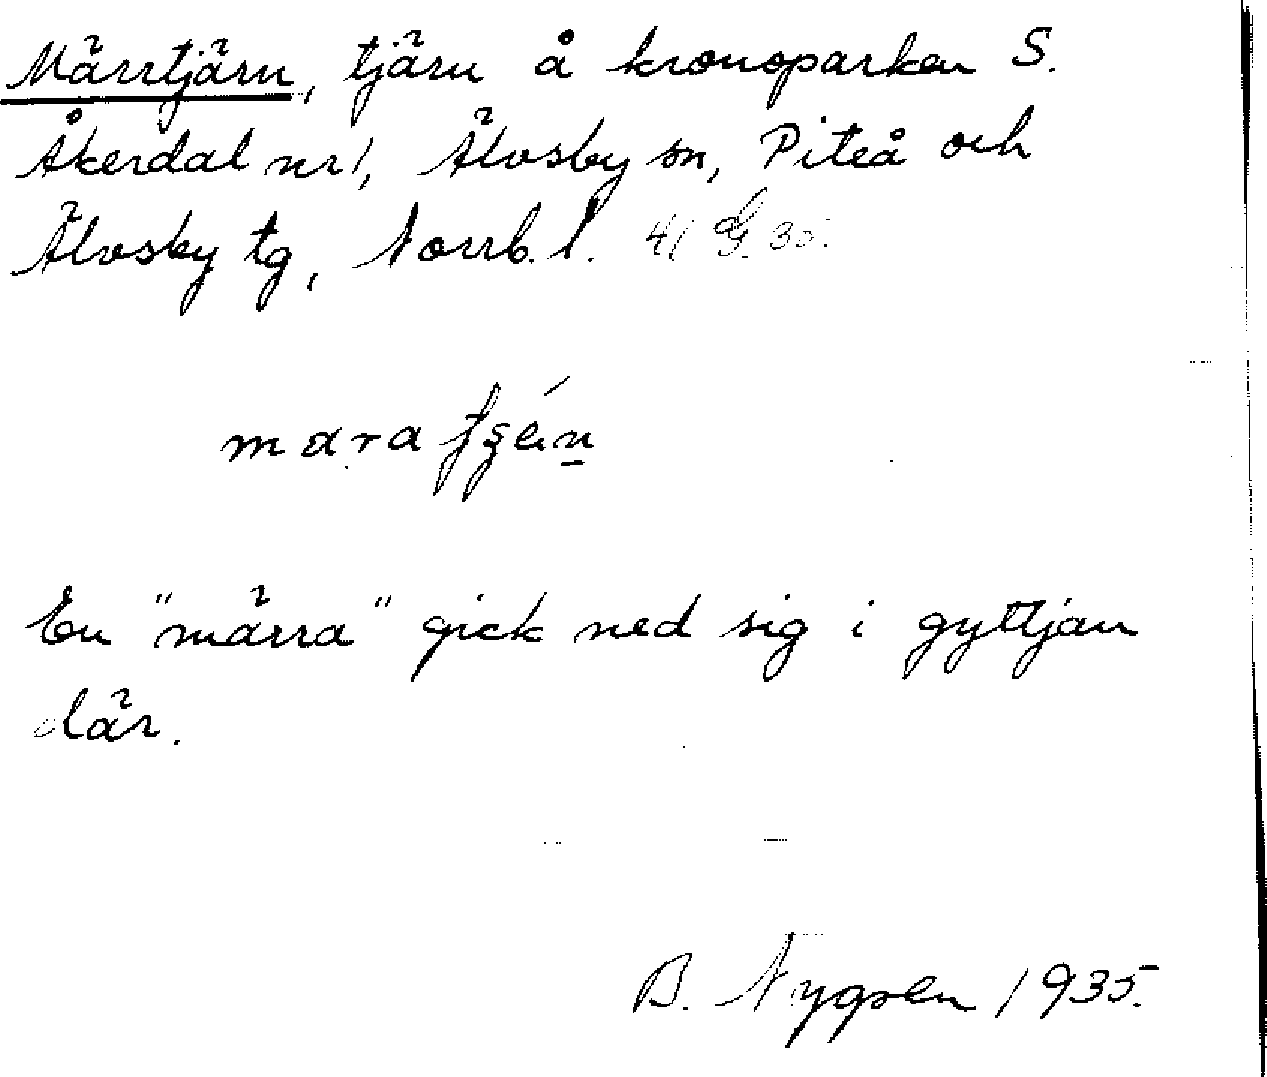 Märrtjärn, tjärn å kronoparken S.
Åkerdal nr 1, Älvsby sn, Piteå och
Älvsby tg, Norrb. l. 41 35.
mara
En "märra" gick ned sig i gyttjan
där.
B. Nygren 1935.